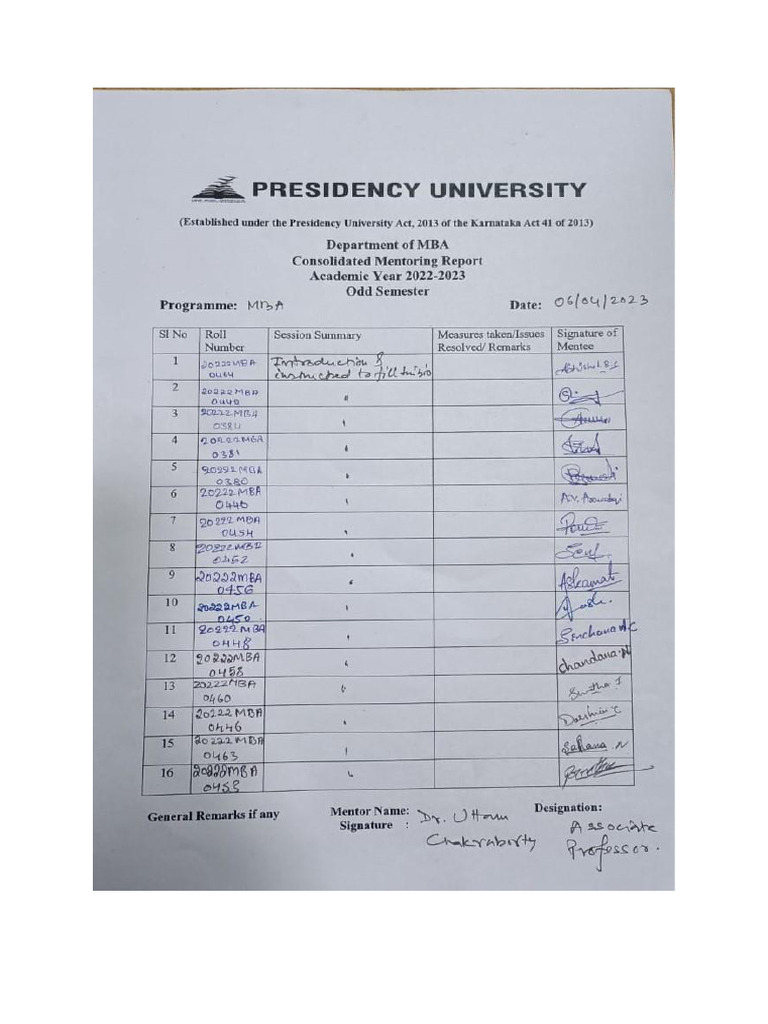 PRESIDENCY UNIVERSITY
(Established under the Presidency University Act, 2013 of the Karnataka Act 41 of 2013)
Department of MBA
Consolidated Mentoring Report
Academic Year 2022-2023
Odd Semester
Programme: MBA Date: 06/04/2023
Sl No Roll Session Summary Measures taken/Issues Signature of
Number Resolved/ Remarks Mentee
1 20222MBA Introduction &
0464 instructed to fill
2 20222MBA "
0440
3 20222MBA
0384
4 20222MBA
0381
5 20222MBA
0380
6 20222MBA
0446
7 20222MBA
0454
8 20222MBA
0452
9 20222MBA
0456
10 20222MBA
0450
11 20222MBA
0448 Sinchana
12 20222MBA Chandana.N
0458
13 20222MBA
0460
14 20222MBA
0446
15 20222MBA Sahana.N
0463
16 20222MBA
0453
General Remarks if any Mentor Name: Dr. Uttam Designation:
Signature : Chakraborty Associate
Professor.